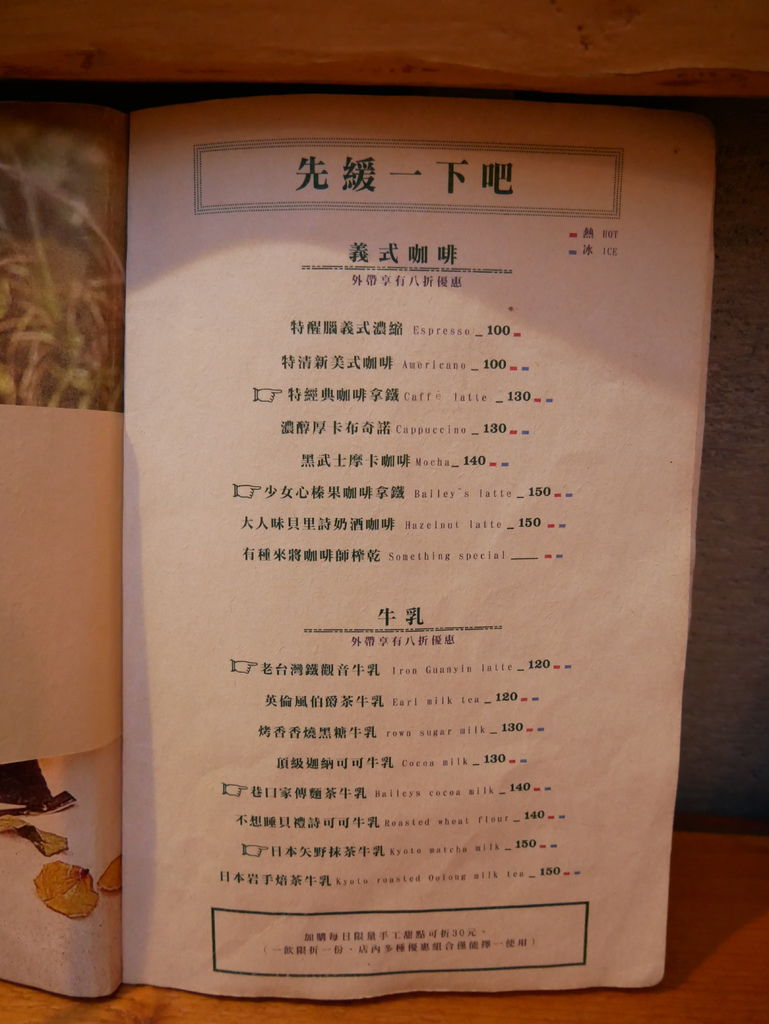 先緩一下吧
熱 HOT
冰 ICE
義式咖啡
外帶享有八折優惠
特醒腦義式濃縮 Espresso _ 100
特清新美式咖啡 Americano _ 100
特經典咖啡拿鐵 Caffè latte _ 130
濃醇厚卡布奇諾 Cappuccino _ 130
黑武士摩卡咖啡 Mocha _ 140
少女心榛果咖啡拿鐵 Bailey's latte _ 150
大人味貝里詩奶酒咖啡 Hazelnut latte _ 150
有種來將咖啡師榨乾 Something special ___
牛乳
外帶享有八折優惠
老台灣鐵觀音牛乳 Iron Guanyin latte _ 120
英倫風伯爵茶牛乳 Earl milk tea _ 120
烤香香燒黑糖牛乳 rown sugar milk _ 130
頂級迦納可可牛乳 Cocoa milk _ 130
巷口家傳麵茶牛乳 Baileys cocoa milk _ 140
不想睡貝禮詩可可牛乳 Roasted wheat flour _ 140
日本矢野抹茶牛乳 Kyoto matcha milk _ 150
日本岩手焙茶牛乳 Kyoto roasted Oolong milk tea _ 150
加購每日限量手工甜點可折30元、
（一飲限折一份、店內多種優惠組合僅能擇一使用）